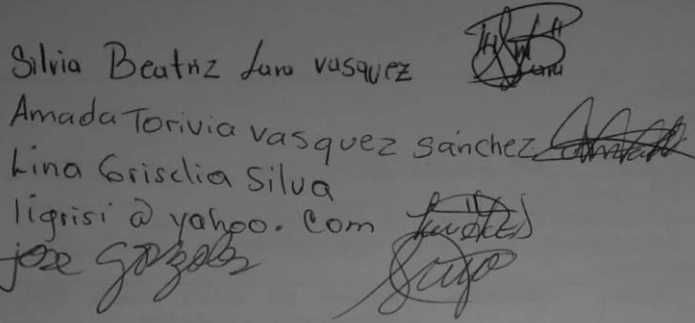 Silvia Beatriz Lara vasquez
Amada Torivia vasquez sánchez
Lina Griselia Silva
ligrisi@yahoo.com
jose